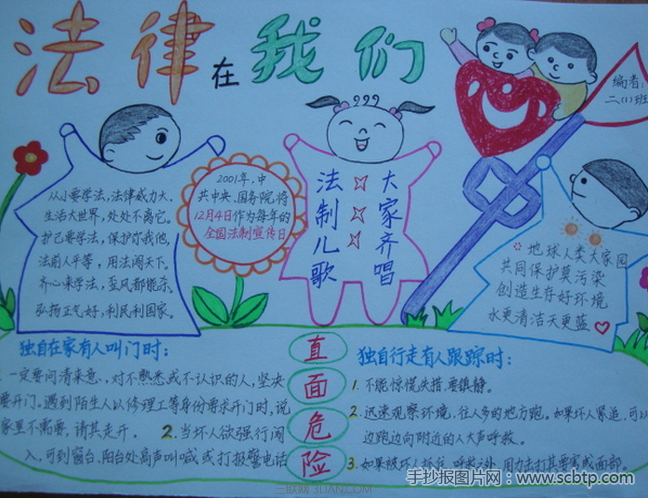 法律在我们
编者:
二(1)班
从小要学法,法律威力大.
生活大世界,处处不离它.
护己要学法,保护你我他,
法前人平等,用法闯天下.
齐心来学法,歪风都能杀.
弘扬正气好,利民利国家.
2001年,中
共中央、国务院,将
12月4日作为每年的
全国法制宣传日
法制儿歌
大家齐唱
地球人类大家园
共同保护莫污染
创造生存好环境
水更清洁天更蓝
直面危险
独自在家有人叫门时:
一定要问清来意,对不熟悉或不认识的人,坚决
要开门。遇到陌生人以修理工等身份要求开门时,说
家里不需要,请其走开. 2.当坏人欲强行闯
入,可到窗台、阳台处高声叫喊或打报警电话
独自行走有人跟踪时:
1.不能惊慌失措.要镇静.
2.迅速观察环境,往人多的地方跑。如果坏人紧追,可以
边跑边向附近的人大声呼救。
3.如果被坏人抓住,呼救之外,用力击打其要害或面部.
手抄报图片网-www.scbtp.com